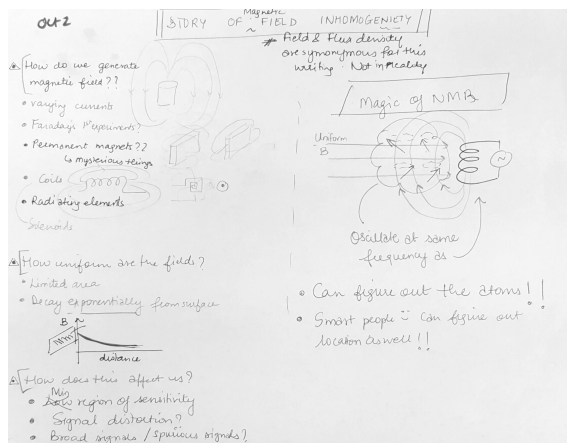 Oct 2
STORY OF Magnetic FIELD INHOMOGENIETY
* Field & Flux density
are synonymous for this
writing. Not in reality
How do we generate
magnetic field??
• varying currents
• Faraday's 1st experiments?
• Permanent magnets??
↳ mysterious things
• Coils
• Radiating elements
Solenoids
How uniform are the fields?
• Limited area
• Decay exponentially from surface
B
distance
How does this affect us?
• Min region of sensitivity
• Signal distortion?
• Broad signals / spurious signals?
Magic of NMR
Uniform
B
Oscillate at same
frequency as
• Can figure out the atoms!!
• Smart people can figure out
location as well!!